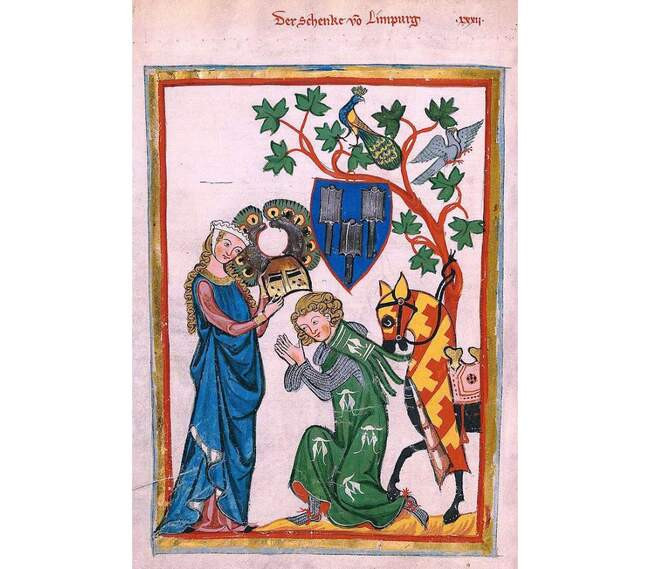 Der Schenke vō Limpurg .xxxii.